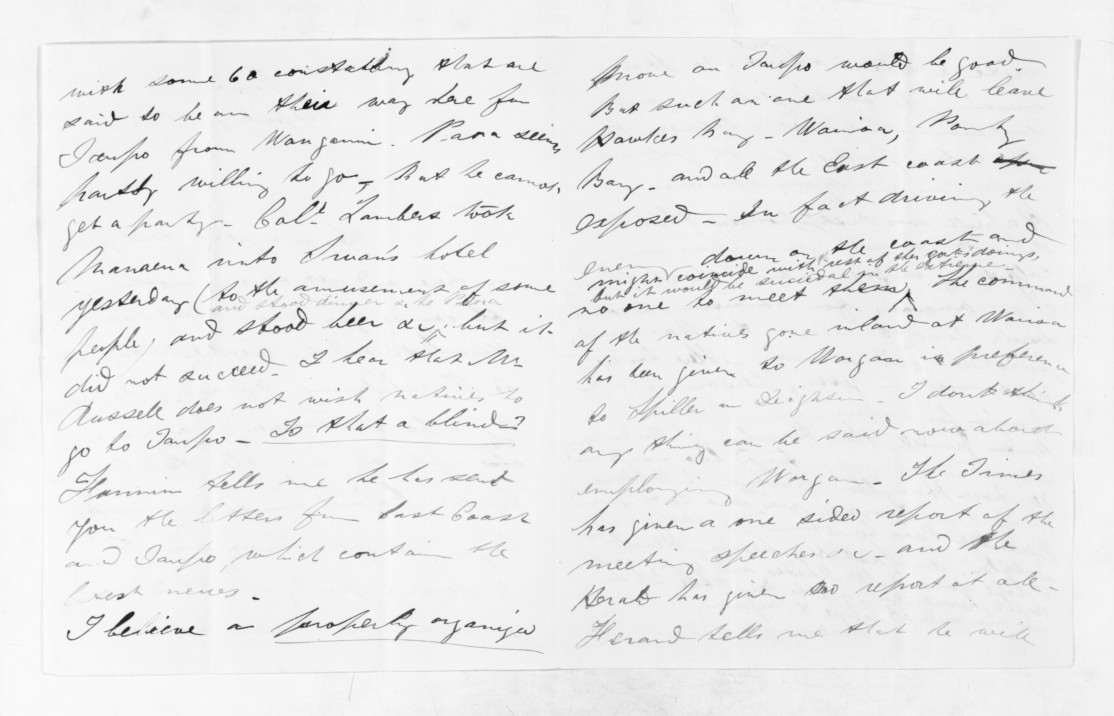 with some 60 constabulary that are
said to be on their way here for
Taupo from Wanganui. Paora seems
partly willing to go, but he cannot
get a party. Col.t Lambert took
Manaena into Swan's hotel
yesterday (to the amusement of some
and stood dinner &c the Paora
people) and stood beer &c, but it
did not succeed. I hear that Mr
Russell does not wish natives to
go to Taupo - Is that a blind?
Hannin tells me he has sent
you the letters from East Coast
and Taupo, which contain the
latest news.
I believe a properly organized
move on Taupo would be good.
But such an one that will leave
Hawkes Bay - Wairoa, Poverty
Bay - and all the East coast
exposed - In fact driving the
enemy down on the coast and
might coincide with rest of their doings,
but it would be suicidal in the extreme
no one to meet them. The command
of the natives gone inland at Wairoa
has been given to Worgan in preference
to Spiller or Deighton. I dont think
any thing can be said now about
employing Worgan. The Times
has given a one sided report of the
meeting speeches &c - and the
Herald has given no report at all -
tells me that he will